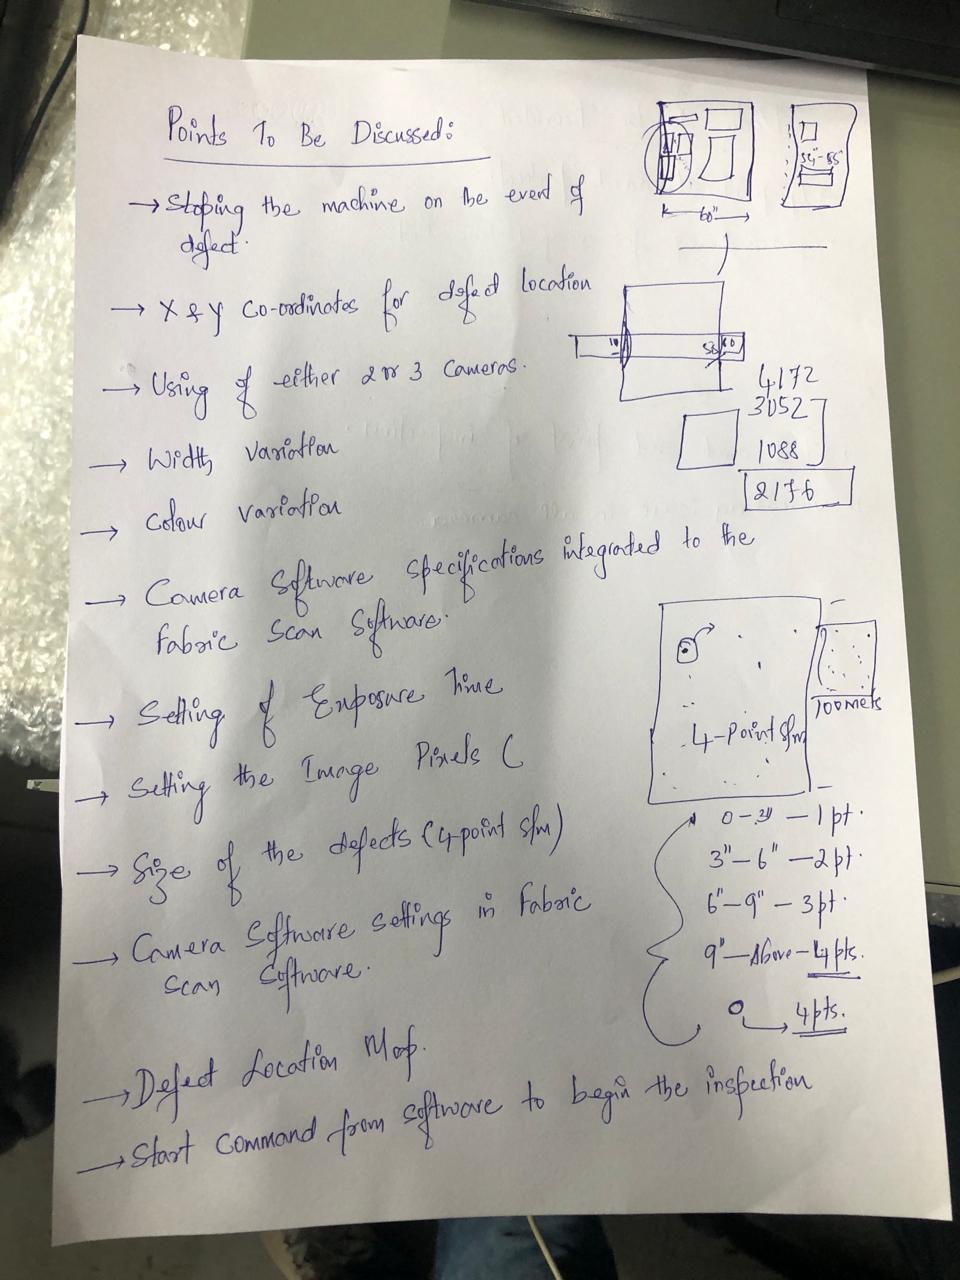 Points To Be Discussed:
→ Stoping the machine on the event of
defect.
→ X & Y Co-ordinates for defect location
→ Using of either 2 or 3 Cameras.
→ Width Variation
→ Colour Variation
→ Camera Software specifications integrated to the
Fabric Scan Software.
→ Setting of Exposure Time
→ Setting the Image Pixels (
→ Size of the defects (4-point S/m)
→ Camera Software settings in Fabric
Scan Software.
→ Defect Location Map.
→ Start Command from software to begin the inspection
60"
58
60
4172
3052
1088
2176
4-Point S/m
100 mets
0-3" — 1 pt.
3"-6" — 2 pt.
6"-9" — 3 pt.
9"-Above - 4 pts.
4 pts.